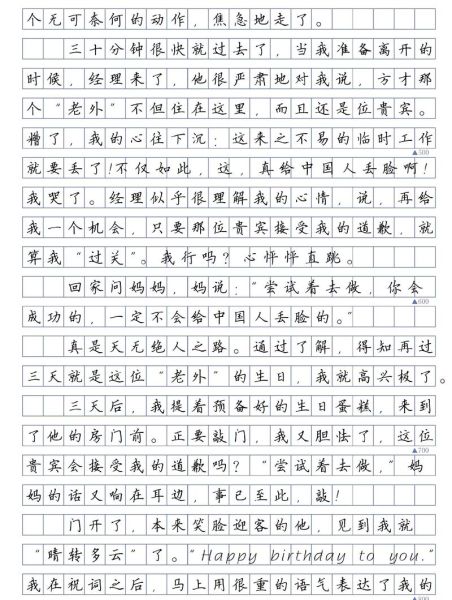 个无可奈何的动作，焦急地走了。
三十分钟很快就过去了，当我准备离开的
时候，经理来了，他很严肃地对我说，方才那
个“老外”不但住在这里，而且还是位贵宾。
糟了，我的心往下沉：这来之不易的临时工作
▲500
就要丢了！不仅如此，这，真给中国人丢脸啊！
我哭了。经理似乎很理解我的心情，说，再给
我一个机会，只要那位贵宾接受我的道歉，就
算我“过关”。我行吗？心怦怦直跳。
回家问妈妈，妈说：“尝试着去做，你会
▲600
成功的，一定不会给中国人丢脸的。”
真是天无绝人之路。通过了解，得知再过
三天就是这位“老外”的生日，我就高兴极了。
三天后，我提着预备好的生日蛋糕，来到
了他的房门前。正要敲门，我又胆怯了，这位
▲700
贵宾会接受我的道歉吗？“尝试着去做，”妈
妈的话又响在耳边，事已至此，敲！
门开了，本来笑脸迎客的他，见到我就
“晴转多云”了。“Happy birthday to you.”
我在祝词之后，马上用很重的语气表达了我的
▲800